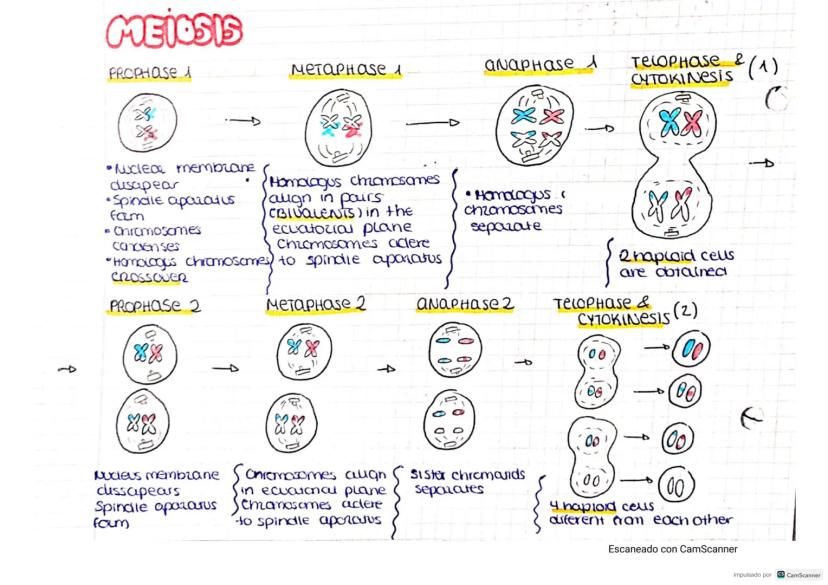 MEIOSIS
PROPHASE 1
METAPHASE 1
ANAPHASE 1
TELOPHASE &
CYTOKINESIS (1)
• Nuclear membrane
disapear
• Spindle aparatus
form
• Chromosomes
condenses
• Homologus chromosomes
CROSSOVER
Homologus chromosomes
align in pairs
(BIVALENTS) in the
ecuatorial plane
Chromosomes adere
to spindle aparatus
• Homologus
chromosomes
separate
2 haploid cells
are obtained
PROPHASE 2
METAPHASE 2
ANAPHASE 2
TELOPHASE &
CYTOKINESIS (2)
Nucleus membrane
dissapears
Spindle aparatus
form
Chromosomes align
in ecuational plane
Chromosomes adere
to spindle aparatus
Sister chromatids
separates
4 haploid cells
diferent from each other
Escaneado con CamScanner
Impulsado por CS CamScanner